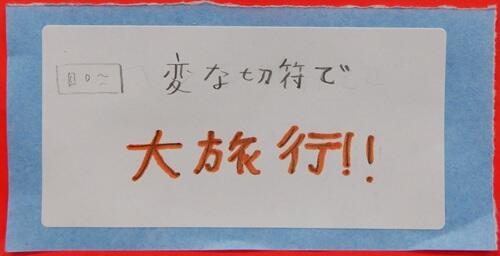 変な切符で
大旅行!!